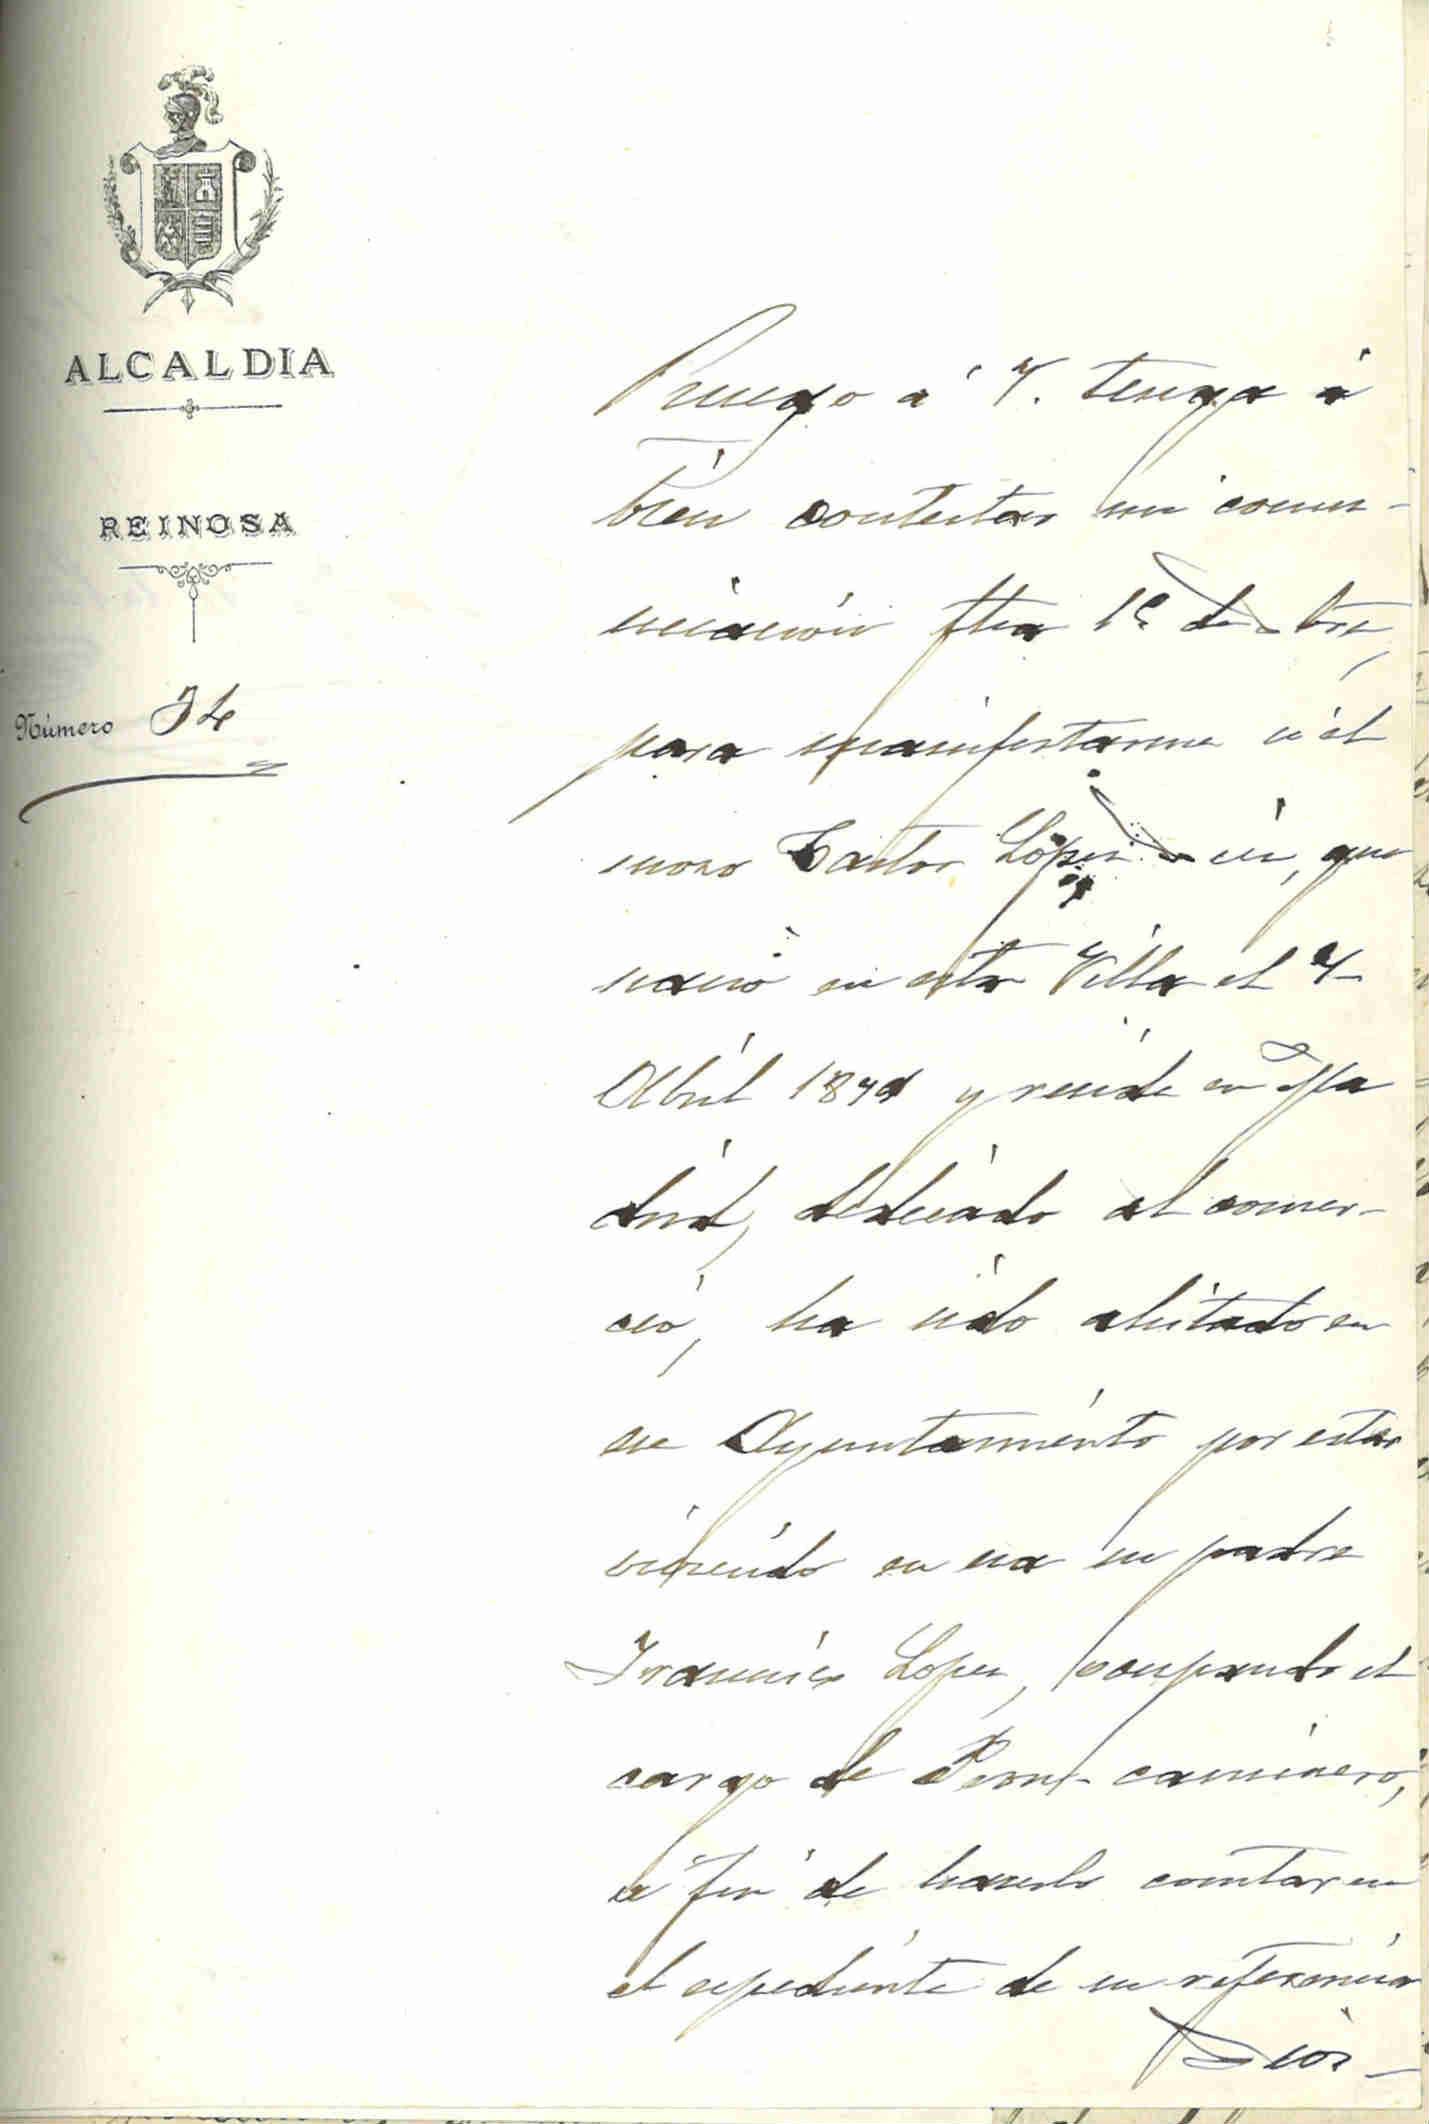 ALCALDIA
REINOSA
Número 34
Ruego á V. tenga á
bien contestar mi comu-
nicación fha 1º de
para manifestarme si el
mozo Castor López que
nació en esta Villa el 4
Abril y reside en Ma
drid, dedicado al comer-
cio, ha sido alistado en
ese Ayuntamiento por estar
viviendo en esa su padre
Francisco Lopez, ocupando el
cargo de Peon-caminero,
a fin de hacerlo constar en
el espediente de su referencia
Dios-